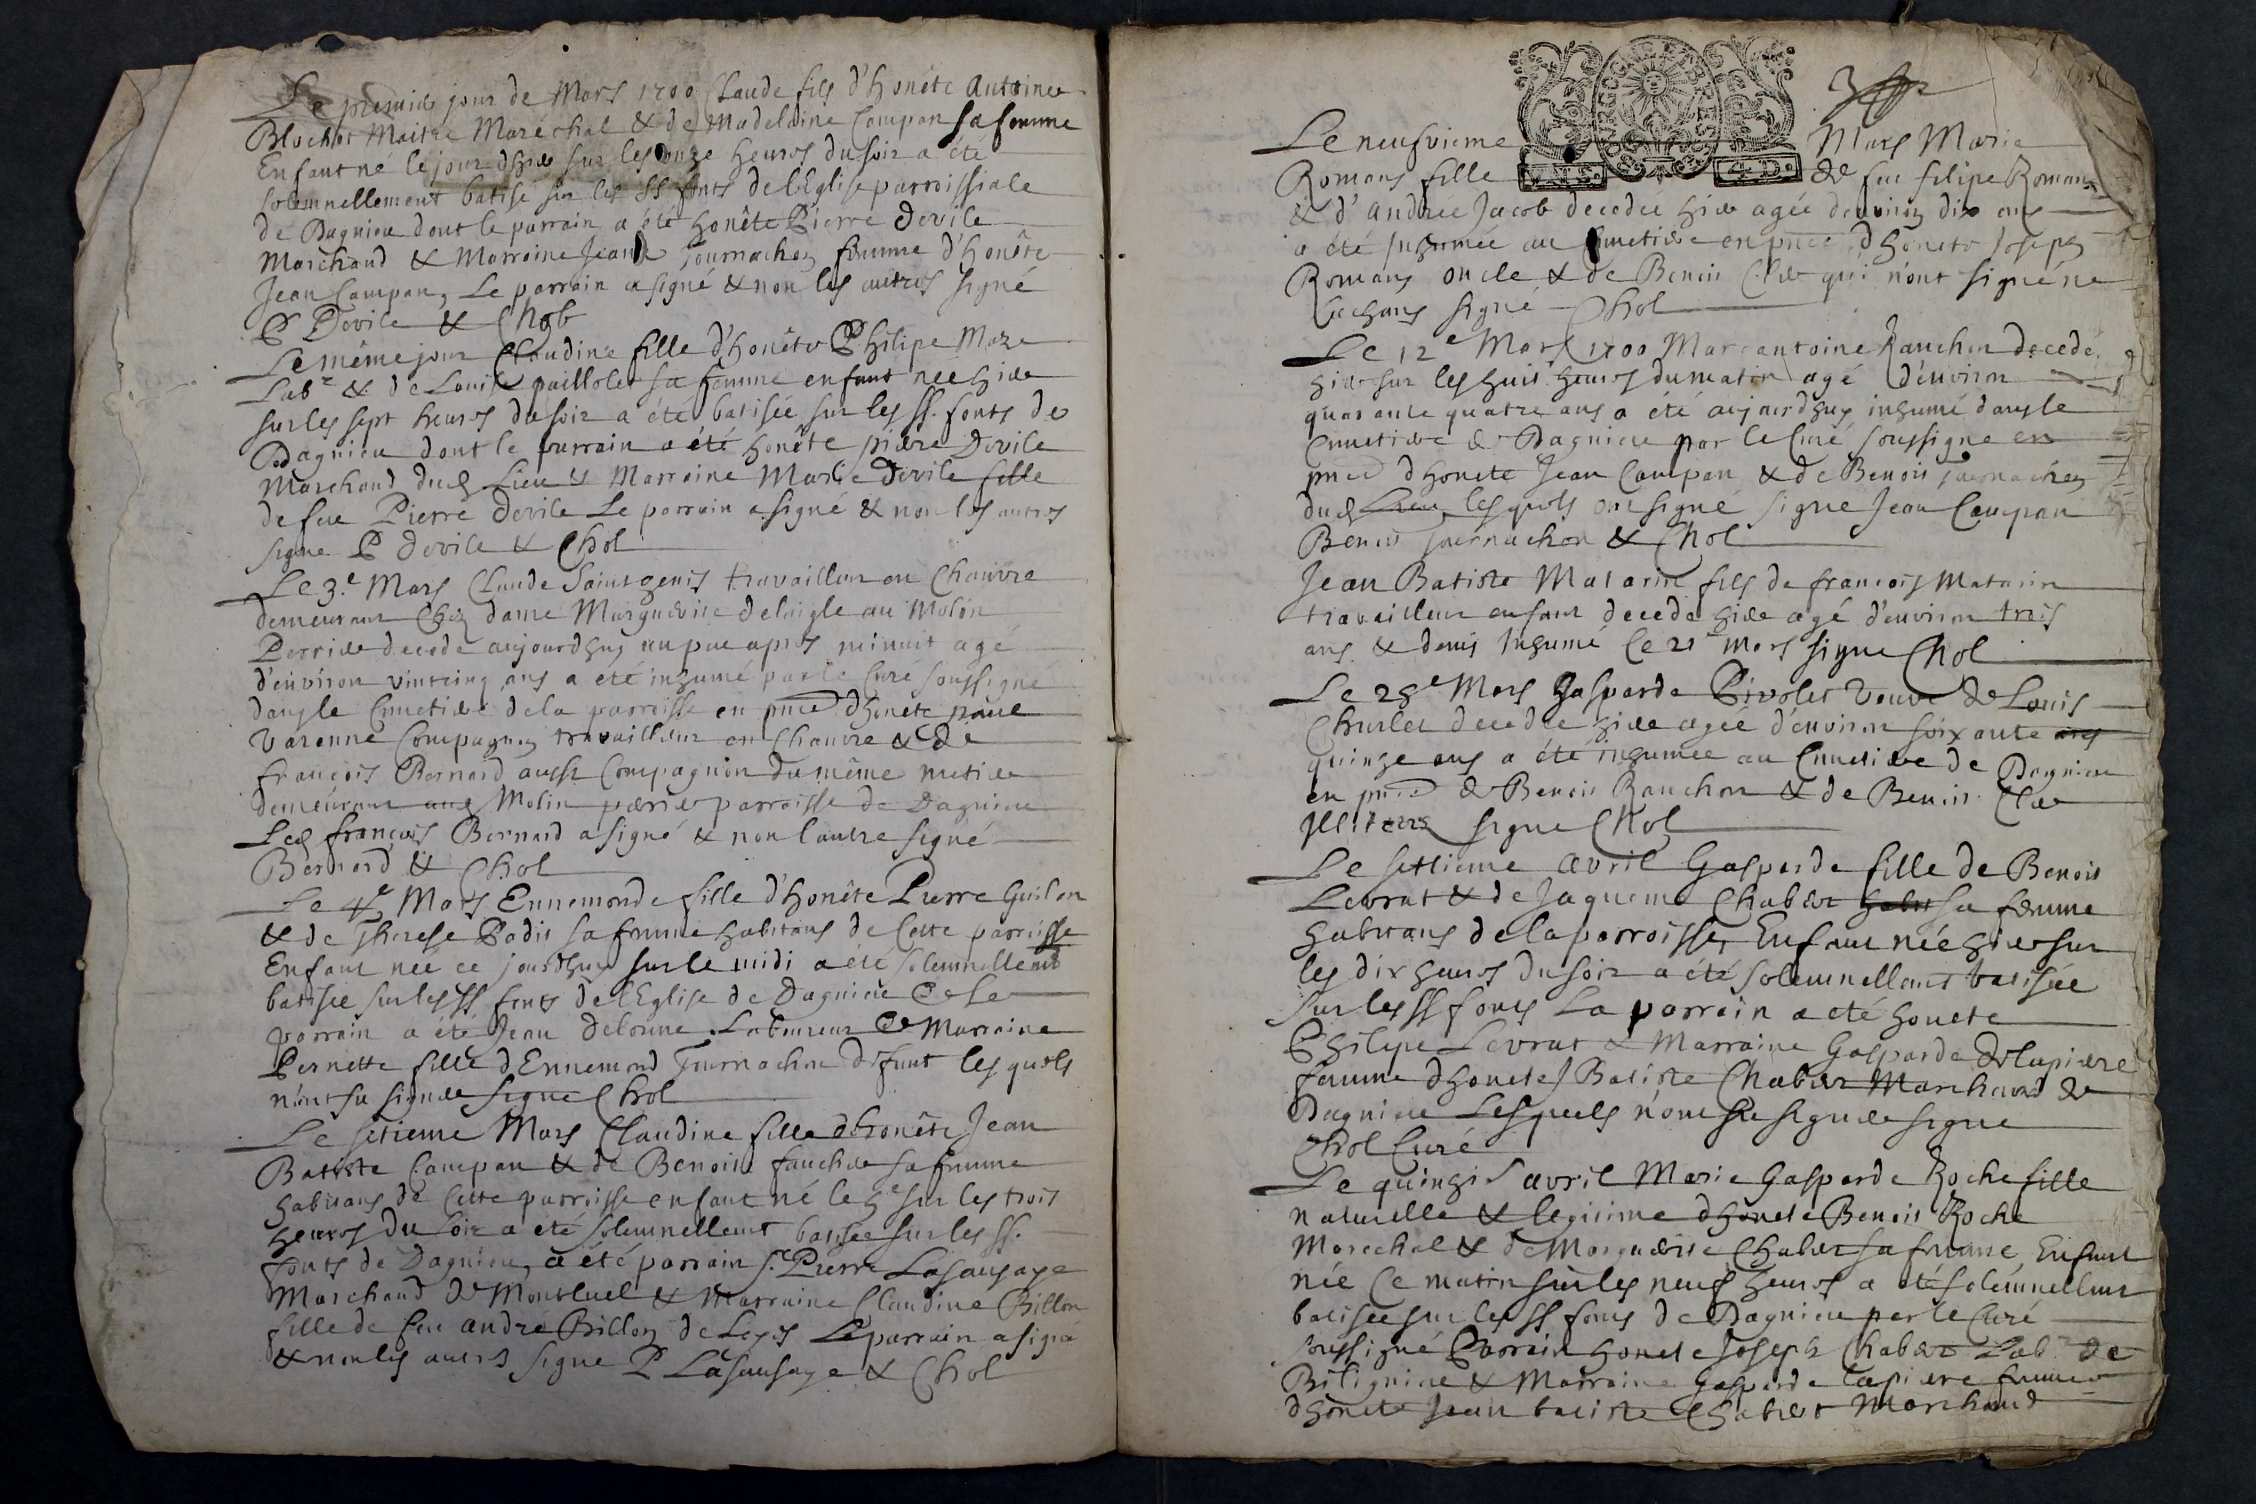 Le premier jour de Mars 1700 Claude fils d'honête Antoine
Bluchet Maitre Maréchal & de Madeleine Campan sa femme
Enfant né le jour d'hier sur les onze heures du soir a été
solemnellement batisé sur les ss fonts de l'Eglise parroissiale
de Dagnieu dont le parrain a été honête Pierre Devile
Marchand & Marraine Jeane Journachon femme d'honête
Jean Campan, Le parrain a signé & non les autres signé
P Devile & Chol
Le même jour Claudine fille d'honête Philipe Maze
Labr & de Louise paillolet sa femme enfant née hier
sur les sept heures du soir a été batisée sur les ss. fonts de
Dagnieu dont le parrain a été honête pierre Devile
Marchand dud Lieu & Marraine Marie Devile fille
de feu Pierre Devile Le parrain a signé & non les autres
signé P devile & Chol
Le 3.e Mars Claude Saint genis travailleur en Chanvre
demeurant Chez dame Marguerite delaigle au Molin
Perrier decedé aujourdhuy un peu apres minuit agé
d'environ vintcinq ans a été inhumé par le Curé soussigné
dans le Cimetiere de la parroisse en pnce d'honête pierre
Varenne Compagnon travailleur en Chanvre & de
françois Bernard aussi Compagnon du même metier
demeurant aud Molin perrier parroisse de Dagnieu
Led françois Bernard a signé & non l'autre signé
Bernard & Chol
Le 4e Mars Ennemonde fille d'honête Pierre Guilon
& de Therese Padit sa femme habitans de Cette parroisse
Enfant née ce jourdhuy sur le midi a été solemnellemt
batisée sur les ss fonts de l'Eglise de Dagnieu & Le
parrain a été Jean delorme Laboureur & Marraine
Pernette fille d'Ennemond Journachon defunt les quels
n'ont su signer signé Chol
Le setieme Mars Claudine fille d'honête Jean
Batiste Campan & de Benoite faucher sa femme
habitans de Cette parroisse enfant né le 5e sur les trois
heures du soir a été solemnellemt batisée sur les ss.
fonts de Dagnieu, a été parrain sr. Pierre Lasausaye
Marchand de Montluel & Marraine Claudine Billon
fille de feu andre Billon de Leyes Le parrain a signé
& non les autres signé P Lasausaye & Chol
Le neufvieme Mars Marie
Romans fille de feu filipe Romans
& d'andrée Jacob decedée hier agée d'environ dix ans
a été Inhumée au Cimetiere en pnce d'honete Joseph
Romans oncle & de Benoit Cler qui n'ont signé ne
sachans signé Chol
Le 12e Mars 1700 Marc antoine Ranchon decedé
hier sur les huit heures du matin agé d'environ
quarante quatre ans a été aujourdhuy inhumé dans le
Cimetiere de Dagnieu par le Curé soussigné en
pnce d'honete Jean Campan & de Benoit journachon
dud Lieu, les quels ont signé signé Jean Campan
Benoit journachon & Chol
Jean Batiste Matarin fils de francois Matarin
travailleur enfant decedé hier agé d'environ trois
ans & demis Inhumé Ce 21e Mars signé Chol
Le 28e Mars Gasparde Pivolet Veuve de Louis
Charlet decedée hier agée d'environ soixante ans
quinze ans a été inhumée au Cimetiere de Dagnieu
en pnce de Benoit Ranchon & de Benoit Cler
Illiterés signé Chol
Le settieme avril Gasparde fille de Benoit
Levrat & de Jaqueme Chabert habit sa femme
habitans de la parroisse, Enfant née hier sur
les dix heures du soir a été solemnellemt batisée
sur les ss fonts La parrain a été honete
Philipe Levrat & Marraine Gasparde delapierre
femme d'honete J Batiste Chabert Marchand de
Dagnieu Lesquels n'ont su signer signé
Chol Curé
Le quinze avril Marie Gasparde Roche fille
naturelle & legitime d'honete Benoit Roche
Marechal & de Marguerite Chabert sa femme, Enfant
née Ce matin sur les neuf heures a été solemnellemt
batisée sur les ss fonts de Dagnieu par le Curé
soussigné Parrain honete Joseph Chabert Labr de
Bilignieu & Marraine Gasparde lapierre femme
d'honete Jean batiste Chabert Marchand